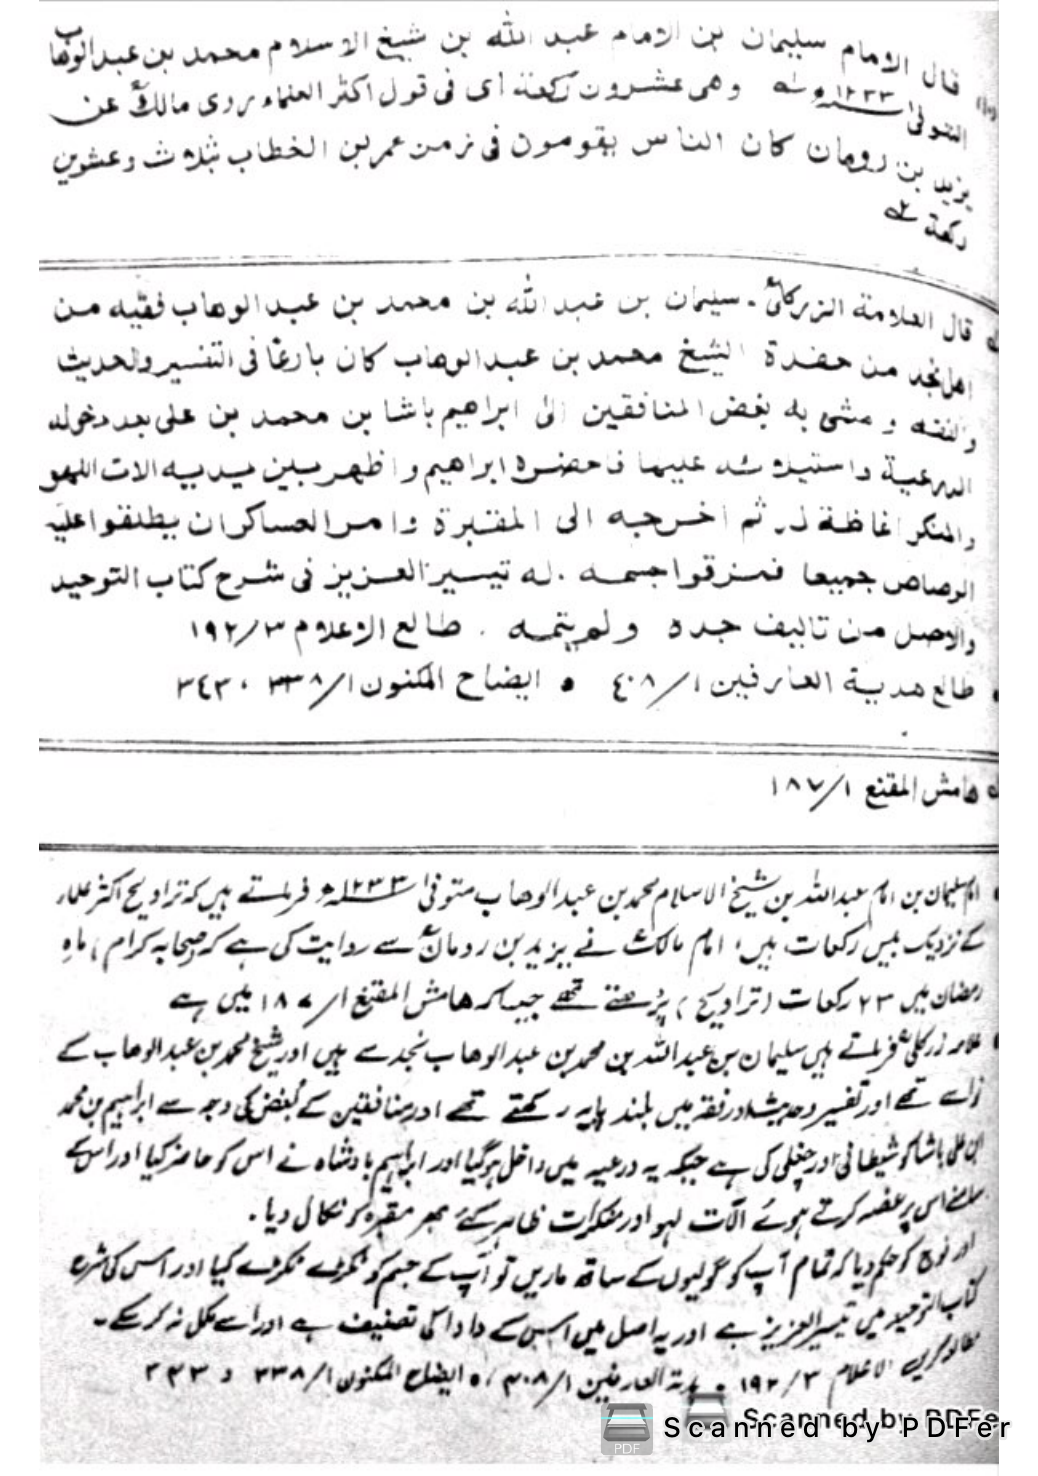 قال الامام سلیمان بن الامام عبد الله بن شیخ الاسلام محمد بن عبدالوهاب
المتوفی ۱۲۳۳ھ وهی عشرون رکعة ای فی قول اکثر العلماء روی مالک عن
یزید بن رومان کان الناس یقومون فی زمن عمر بن الخطاب بثلاث وعشرین
رکعة
قال العلامة الزرکلی ۔ سلیمان بن عبد الله بن محمد بن عبد الوهاب فقیه من
اهل نجد من حفدة الشیخ محمد بن عبد الوهاب کان بارعا فی التفسیر والحدیث
والفقه و مشی به بغض المنافقین الی ابراهیم باشا بن محمد بن علی بعد دخوله
الدرعیة واستیلائه علیها فاحضره ابراهیم واظهر بین یدیه الات اللهو
والمنکر اغاظة له ثم اخرجه الی المقبرة وامر العساکر ان یطلقوا علیه
الرصاص جمیعا فمزقوا جسمه . له تیسیر العزیز فی شرح کتاب التوحید
والاصل من تالیف جده ولم یتمه . طالع الاعلام ۱۹۲/۳
• طالع هدیة العارفین ۴۰۸/۱ • ایضاح المکنون ۳۳۸/۱ ، ۳٤۳
هامش المقنع ۱۸۷/۱
• امام سلیمان بن امام عبداللہ بن شیخ الاسلام محمد بن عبدالوهاب متوفی ۱۲۳۳ھ فرماتے ہیں کہ تراویح اکثر علماء
کے نزدیک بیس رکعات ہیں، امام مالکؒ نے یزید بن رومانؒ سے روایت کی ہے کہ صحابہ کرام، ماہِ
رمضان میں ۲۳ رکعات (تراویح) پڑھتے تھے جیسا کہ هامش المقنع ۱۸۷/۱ میں ہے
• علامہ زرکلیؒ فرماتے ہیں سلیمان بن عبداللہ بن محمد بن عبدالوهاب نجد سے ہیں اور شیخ محمد بن عبدالوهاب کے
تھے اور تفسیر و حدیث اور فقہ میں بلند پایہ رکھتے تھے اور منافقین کے بُغض کی وجہ سے ابراہیم بن محمد
ابن علی باشا کو شیطانی اور چغلی کی ہے جبکہ یہ درعیہ میں داخل ہوگیا اور ابراہیم بادشاہ نے اس کو حاضر کیا اور اس کے
سامنے اس پر غصہ کرتے ہوئے آلات لہو اور منکرات ظاہر کئے پھر مقبرہ کو نکال دیا۔
اور فوج کو حکم دیا کہ تمام آپ کو گولیوں کے ساتھ ماریں تو آپ کے جسم کو ٹکڑے ٹکڑے کیا اور اس کی شرح
کتاب التوحید میں تیسیر العزیز ہے اور یہ اصل میں اس کے دادا کی تصنیف ہے اور اسے مکمل نہ کرسکے۔
مطالعہ کریں الاعلام ۱۹۲/۳ • العارفین ۴۰۸/۱، • ایضاح المکنون ۳۳۸/۱ و ۳۴۳
Scanned by PDFer
Scanned by PDFer
PDF